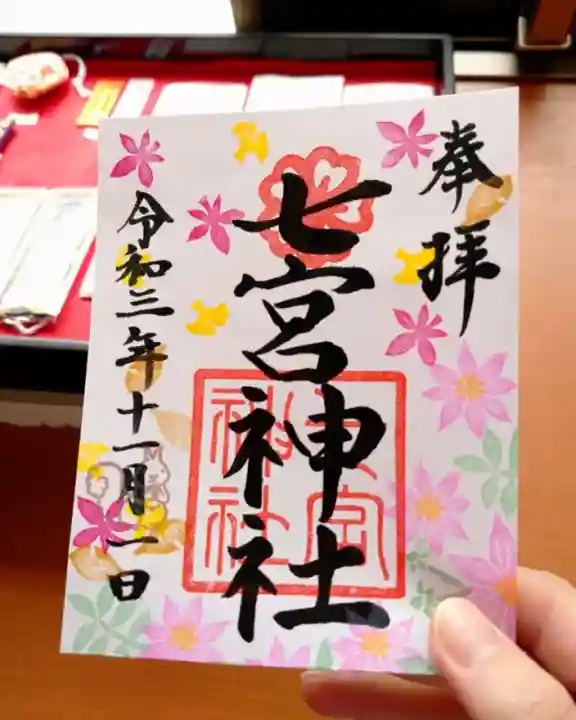 奉拝
七宮神社
七宮
神社
令和三年十一月一日